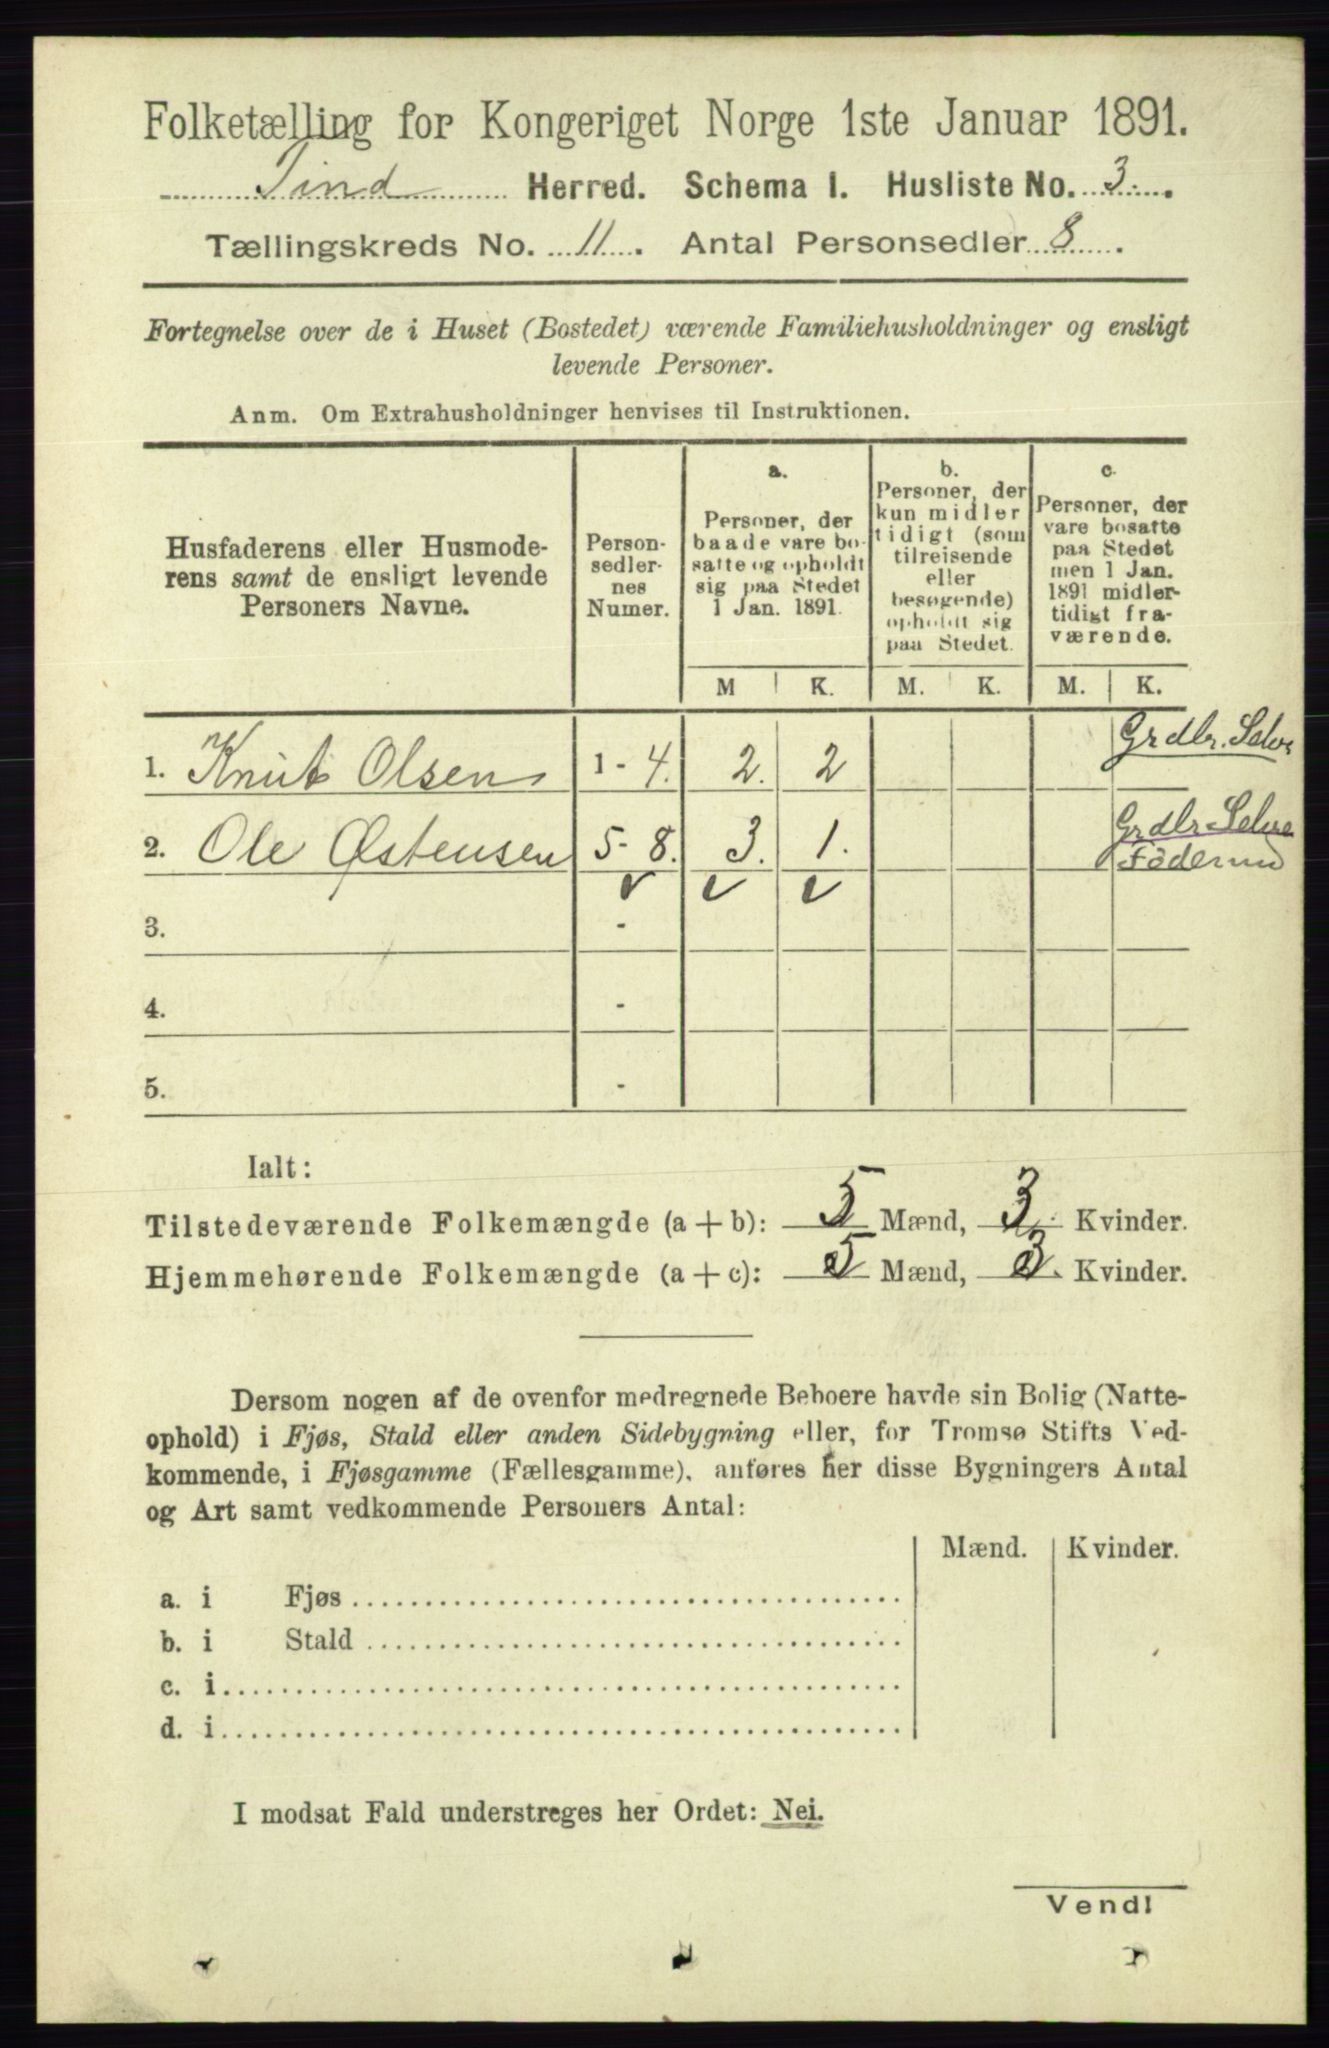 Folketælling for Kongeriget Norge 1ste Januar 1891.
Tind Herred. Schema I. Husliste No. 3.
Tællingskreds No. 11. Antal Personsedler 8.
Fortegnelse over de i Huset (Bostedet) værende Familiehusholdninger og ensligt
levende Personer.
Anm. Om Extrahusholdninger henvises til Instruktionen.
Husfaderens eller Husmode-
rens samt de ensligt levende
Personers Navne.
Person-
sedler-
nes
Numer.
a.
Personer, der
baade vare bo-
satte og opholdt
sig paa Stedet
1 Jan. 1891.
b.
Personer, der
kun midler
tidigt (som
tilreisende
eller
besøgende)
opholdt sig
paa Stedet.
c.
Personer, der
vare bosatte
paa Stedet
men 1 Jan.
1891 midler-
tidigt fra-
værende.
M K. M. K. M. K.
1. Knut Olsen 1 - 4. 2. 2 Grdbr. Selve
2. Ole Østensen 5 - 8. 3. 1. Grdbr Selve
3. -
4. -
5. -
Ialt:
Tilstedeværende Folkemængde (a + b): 5 Mænd, 3. Kvinder.
Hjemmehørende Folkemængde (a + c): 5 Mænd, 3. Kvinder.
Dersom nogen af de ovenfor medregnede Beboere havde sin Bolig (Natte-
ophold) i Fjøs, Stald eller anden Sidebygning eller, for Tromsø Stifts Ved-
kommende, i Fjøsgamme (Fællesgamme), anføres her disse Bygningers Antal
og Art samt vedkommende Personers Antal:
Mænd. Kvinder.
a. i Fjøs
b. i Stald
c. i
d. i
I modsat Fald understreges her Ordet: Nei.
Vend!